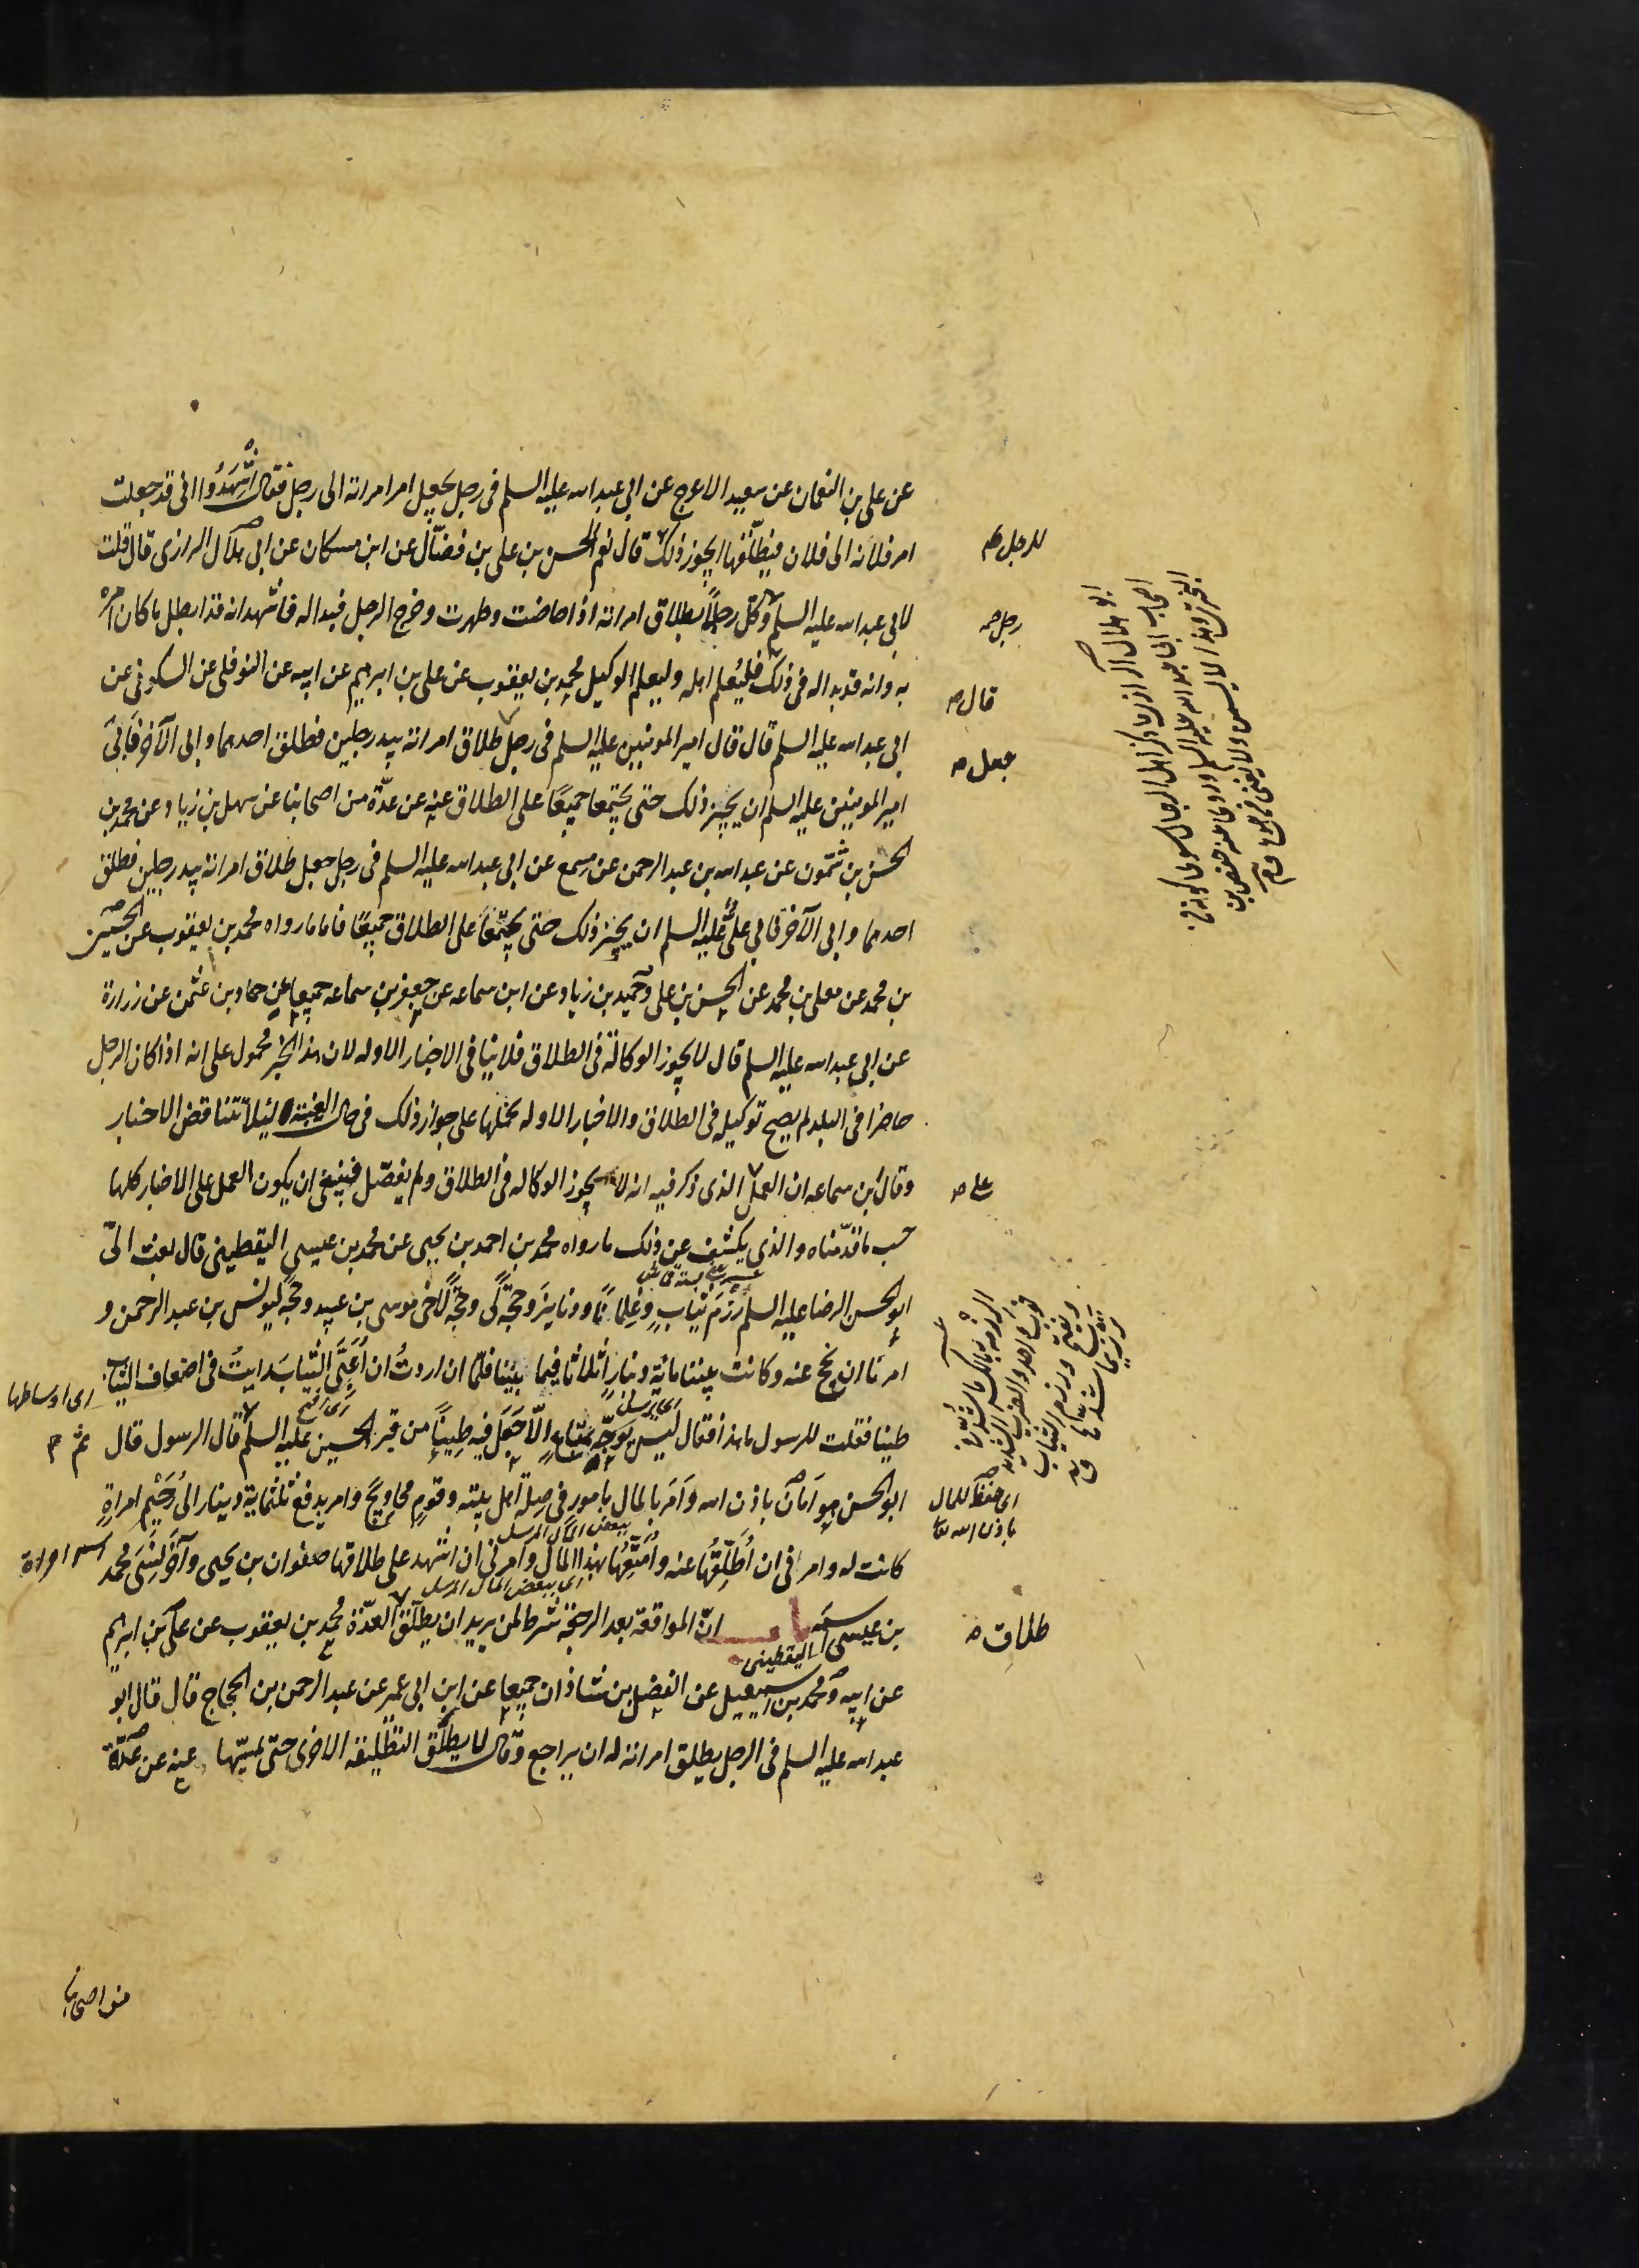 عن علی بن النعمان عن سعید الاعرج عن ابی عبد الله علیه السلم فی رجل یجعل امر امراته الی رجل فقال اُشْهِدُوا انی قد جعلت
امر فلانه الی فلان فیطلّقها ایجوز ذلک قال نعم الحسن بن علی بن فضّال عن ابن مسکان عن ابی هلال الرازی قال قلت
للرجل
لابی عبد الله علیه السلم وکّل رجلاً بطلاق امراته اذا حاضت وطهرت وخرج الرجل فبدا له فاشهد انه قد ابطل ما کان امره
رجل
به وانه قد بدا له فی ذلک فلیُعلم اهله ولیعلم الوکیل محمد بن یعقوب عن علی بن ابرهیم عن ابیه عن النوفلی عن السکونی عن
قال
ابی عبد الله علیه السلم قال قال امیر المومنین علیه السلم فی رجل طلاق امراته بید رجلین فطلق احدهما وابی الآخر فَاَبَی
جعل
امیر المومنین علیه السلم ان یجیز ذلک حتی یجتمعا جمیعًا علی الطلاق عنه عن عدّة من اصحابنا عن سهل بن زیاد عن محمد بن
الحسن بن شمّون عن عبد الله بن عبد الرحمن عن مسمع عن ابی عبد الله علیه السلم فی رجل جعل طلاق امراته بید رجلین فطلق
احدهما وابی الآخر فابی علیّ علیه السلم ان یجیز ذلک حتی یجتمعا علی الطلاق جمیعًا فاما ما رواه محمد بن یعقوب عن الحسین
بن محمد عن معلی بن محمد عن الحسن بن علی وحمید بن زیاد عن ابن سماعه عن جعفر بن سماعه جمیعا عن حماد بن عثمن عن زرارة
عن ابی عبد الله علیه السلم قال لا یجوز الوکالة فی الطلاق فلا ینافی الاخبار الاوله لان هذا الخبر محمول علی انه اذا کان الرجل
حاضرا فی البلد لم یصح توکیله فی الطلاق والاخبار الاوله نحملها علی جواز ذلک فی حال الغیبة لئلا تتناقض الاخبار
وقال ابن سماعه ان العمل الذی ذکر فیه انه لا یجوز الوکاله فی الطلاق ولم یفصّل فینبغی ان یکون العمل علی الاخبار کلها
علی
حسب ما قدّمناه والذی یکشف عن ذلک ما رواه محمد بن احمد بن یحیی عن محمد بن عیسی الیقطینی قال بعث الیّ
ابو الحسن الرضا علیه السلم رِزَمَ ثیابٍ وغِلمانًا ودنانیرَ وحَجّةً لی وحَجّةً لاخی موسی بن عبید وحجّة لیونس بن عبد الرحمن و
امرنا ان نحج عنه وکانت بیننا مائة دینارٍ اثلاثا فیما بیننا فلمّا ان اردتُ ان اُعَبِّیَ الثیاب رایتُ فی اضعاف الثیاب
ای اوساطها
طینا فقلت للرسول ما هذا فقال لیس یوَجّه بمتاعٍ الاّ جَعَلَ فیه طِینًا من قبر الحسین علیه السلم قال الرسول قال
ثم
ابو الحسن هو اَمَانٌ باذن الله واَمَرَ بالمال بامورٍ فی صِلة اهل بیته وقومٍ محاوِیجَ وامر بدفع ثلثمایة دینار الی رُحَیْم امراةٍ
ای حفظ للمال
باذن الله تعا
کانت له وامرنی ان اُطَلِّقَها عنه واُمَتِّعُها بهذا المال وامرنی ان اشهد علی طلاقها صفوان بن یحیی وآخَرَ نَسِیَ محمد
اسم امراة
ببعض المال المرسل
بن عیسی اسمه
الیقطینی
انّ المواقعة بعد الرجعة شرط لمن یرید ان یطلّق للعدّة محمد بن یعقوب عن علی بن ابرهیم
طلاق
عن ابیه ومحمد بن اسمعیل عن الفضل بن شاذان جمیعا عن ابن ابی عمیر عن عبد الرحمن بن الحجاج قال قال ابو
عبد الله علیه السلم فی الرجل یطلق امراته له ان یراجع وقال لا یطلّق التطلیقه الاخری حتّی یمسّها عنه عن عدّة
من اصحابنا